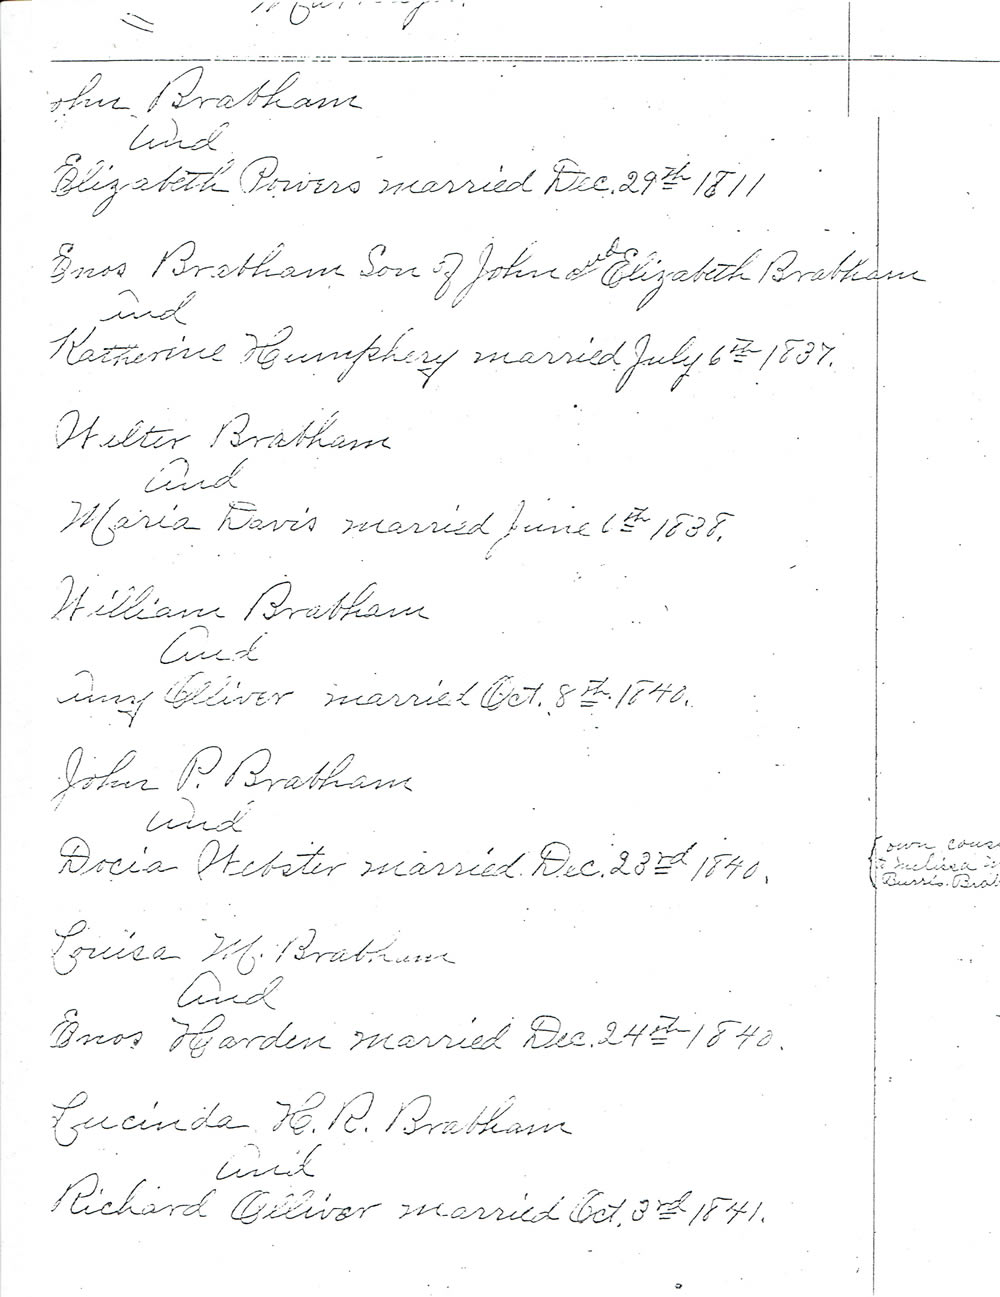 ohn Brabham
And
Elizabeth Powers married Dec. 29th 1811
Enos Brabham Son of John and Elizabeth Brabham
and
Katherine Humphery married July 6th 1837.
Welter Brabham
And
Maria Davis married June 6th 1838.
William Brabham
And
Amy Olliver married Oct. 8th 1840.
John P. Brabham
And
Docia Webster married Dec. 23rd 1840.
own cous
to Melissa
Burris Brab
Louisa M. Brabham
And
Enos Harden married Dec. 24th 1840.
Lucinda H. R. Brabham
And
Richard Olliver married Oct. 3rd 1841.